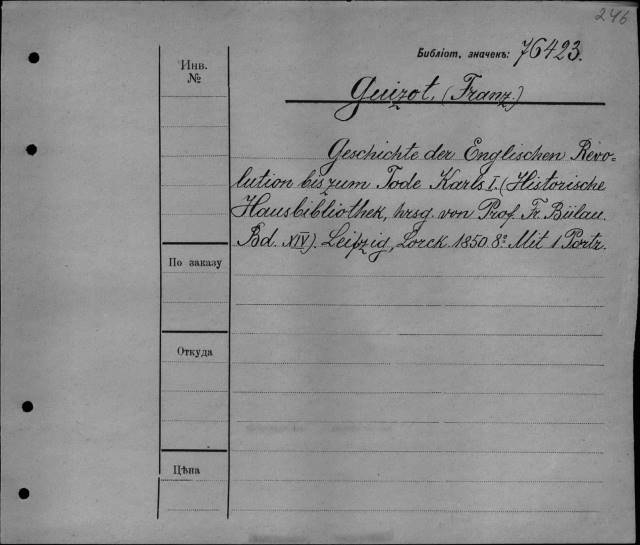 246
Библіот. значекъ: 76423.
Инв.
№
Guizot, (Franz.)
Geschichte der Englischen Revo-
lution bis zum Tode Karls I. (Historische
Hausbibliothek, hrsg. von Prof. Fr. Bülau.
Bd. XIV). Leipzig, Lorck. 1850. 8º Mit 1 Portr.
По заказу
Откуда
Цѣна